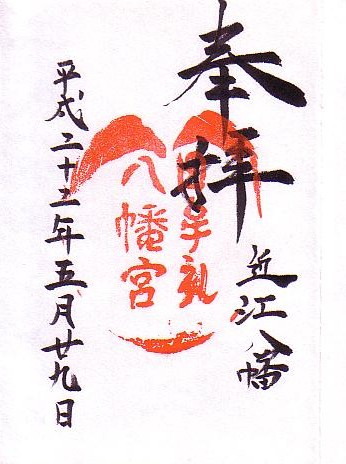 奉拝
近江八幡
日牟礼
八幡宮
平成二十二年五月廿九日